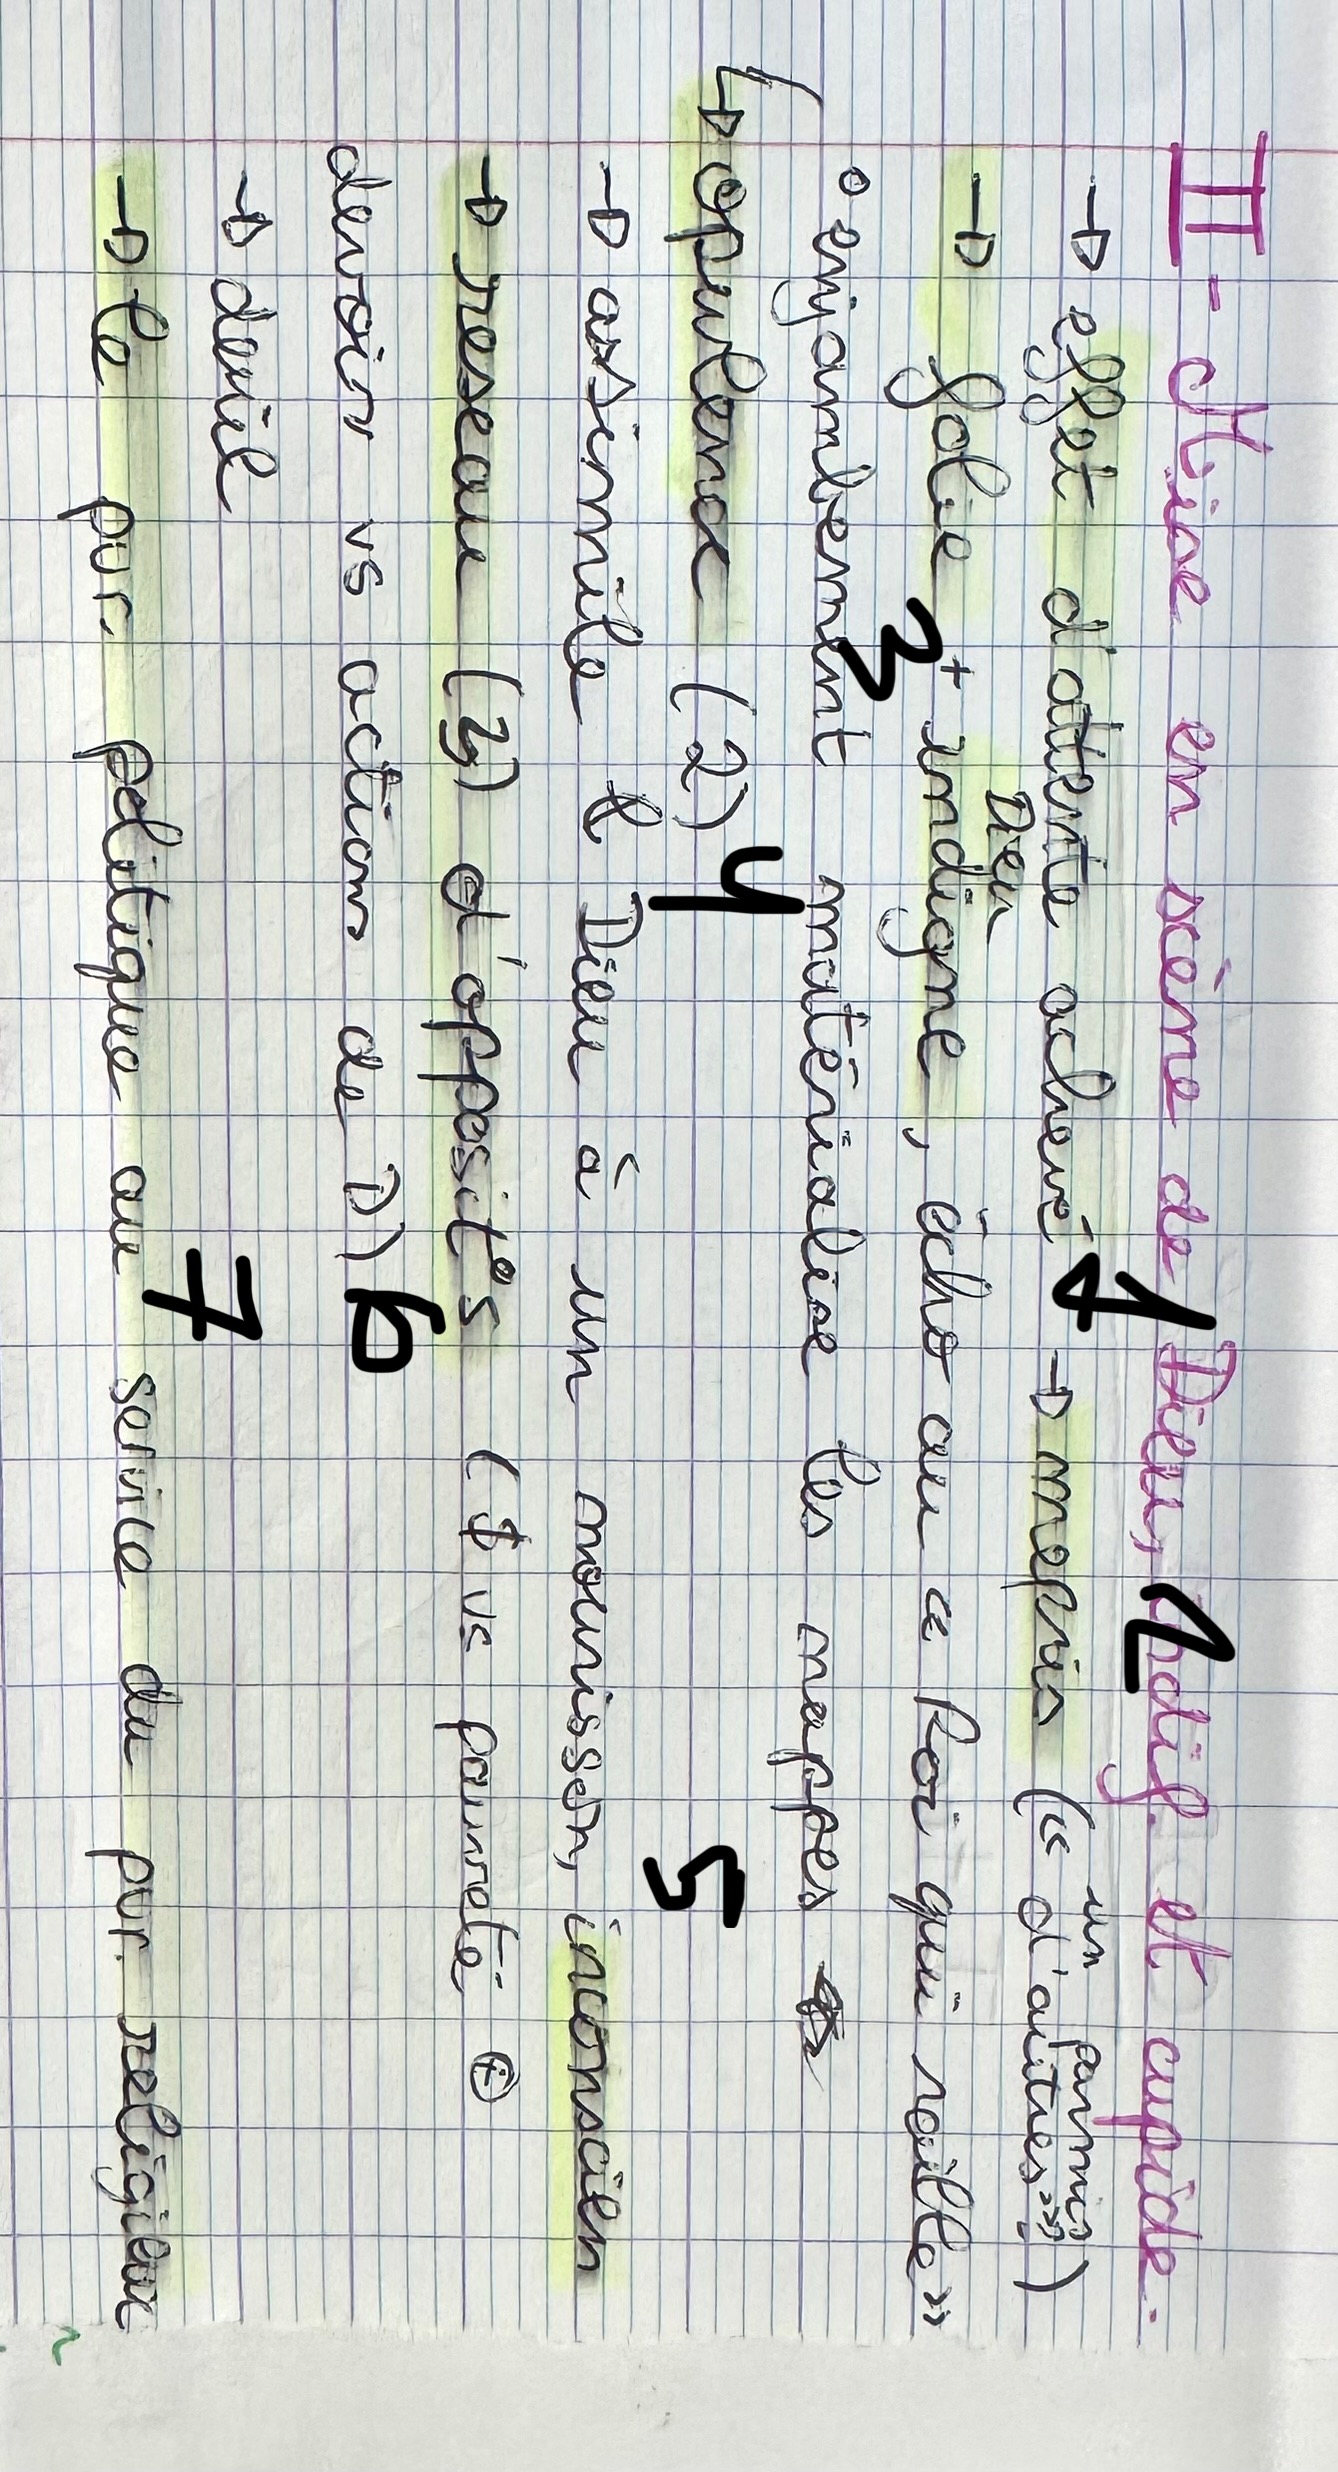 II - Mise en scène de Dieu, passif et cupide.
→ effet d'attente achevé 1 → mépris (« un parmis d'autres ») 2
→ folie + indigne, écho au « Roi qui raille » 3
Dieu
° enjambement matérialise les nappes
↳ opulence (2) 4
→ assimile le Dieu à un nourisson, inconscien 5
→ reseau (3) d'opposit°s ($ vs pauvreté ⊕
devoir vs actions de D) 6
→ deuil
→ le pvr. politique au service du pvr. religieux 7